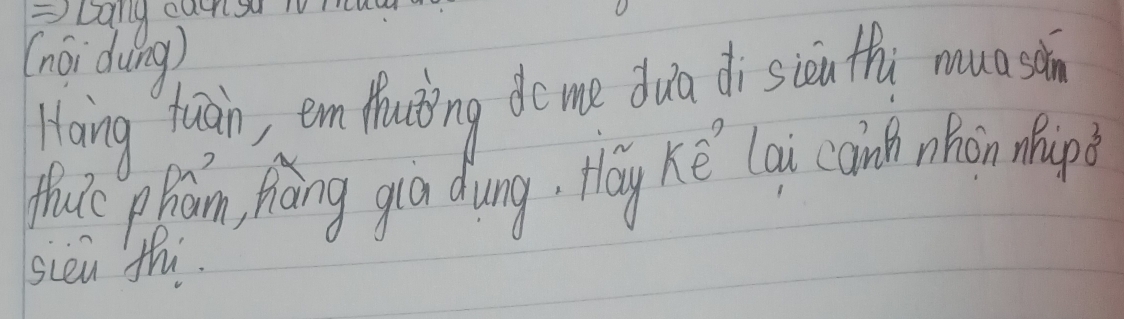 ⇒ Bằng cách sử
(nội dung)
Hàng tuần, em thường đc mẹ đưa đi siêu thị mua sắm
thực phẩm, hàng gia dụng. Hãy kể lại cảnh nhộn nhịp ở
siêu thị.